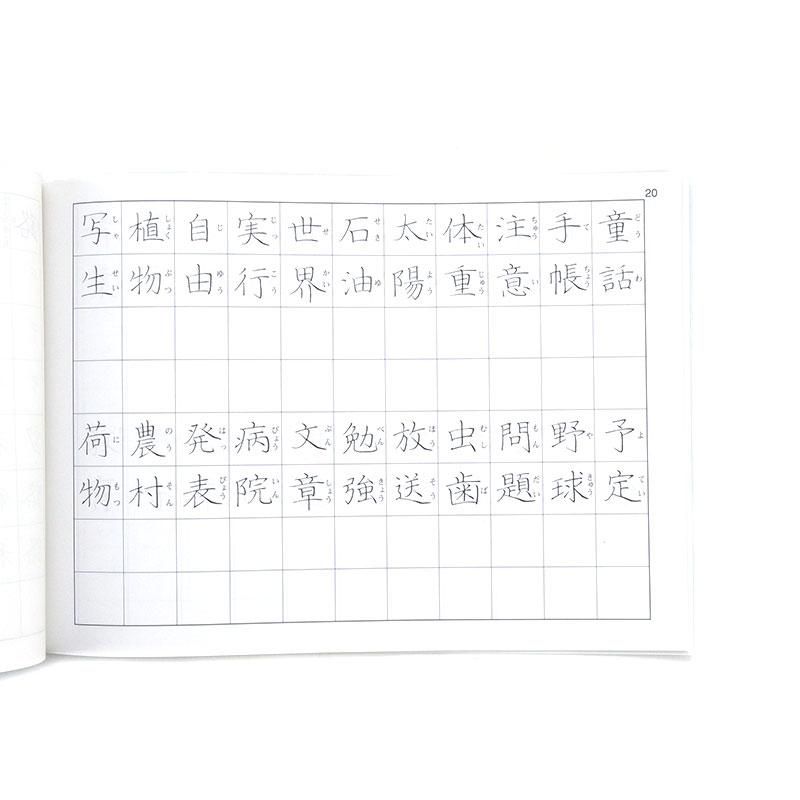 20
童話
どうわ
手帳
てちょう
注意
ちゅうい
体重
たいじゅう
太陽
たいよう
石油
せきゆ
世界
せかい
実行
じっこう
自由
じゆう
植物
しょくぶつ
写生
しゃせい
予定
よてい
野球
やきゅう
問題
もんだい
虫歯
むしば
放送
ほうそう
勉強
べんきょう
文章
ぶんしょう
病院
びょういん
発表
はっぴょう
農村
のうそん
荷物
にもつ